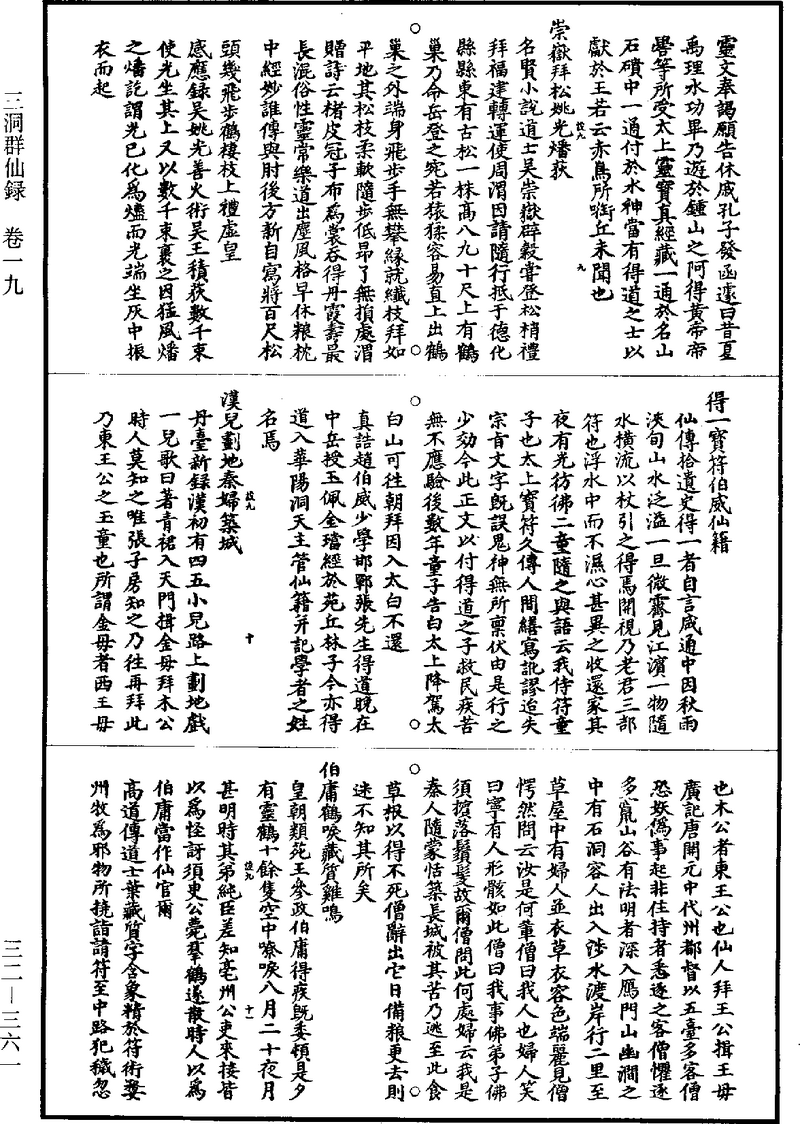 三洞群仙録　卷一九
三二—三六一
靈文奉謁願告休咸孔子發函遽曰昔夏
禹理水功畢乃遊於鍾山之阿得黄帝帝
嚳等所受太上靈寶真經藏一通於名山
石磧中一通付於水神當有得道之士以
獻於王若云赤烏所㗸丘未聞也
崇嶽拜松姚光燔荻
設九　九
名賢小説道士吳崇嶽辟穀嘗登松梢禮
拜福建轉運使周渭因請隨行抵于德化
縣縣東有古松一株高八九十尺上有鶴
巢乃命岳登之宛若猿猱容易直上出鶴
巢之外端身飛步手無攀緣就纖枝拜如
平地其松枝柔軟隨步低昂了無損處渭
贈詩云楮皮冠子布爲裳吞得丹霞壽最
長混俗性靈常樂道出塵風格早休粮枕
中經妙誰傳與肘後方新自寫將百尺松
頭幾飛步鶴棲枝上禮虚皇
感應録吳姚光善火術吳王積荻數千束
使光坐其上又以數千束裹之因猛風燔
之燔訖謂光已化爲燼而光端坐灰中振
衣而起
得一寶符伯威仙籍
仙傳拾遺史得一者自言咸通中因秋雨
浹旬山水泛溢一旦微霽見江濱一物隨
水横流以杖引之得焉開視乃老君三部
符也浮水中而不濕心甚異之收還家其
夜有光彷彿二童隨之與語云我侍符童
子也太上寶符久傳人間繕寫訛謬迨失
宗旨文字既誤鬼神無所禀伏由是行之
少効今此正文以付得道之子救民疾苦
無不應驗後數年童子告曰太上降駕太
白山可往朝拜因入太白不還
真誥趙伯威少學邯鄲張先生得道晚在
中岳授玉佩金璫經於苑丘林子今亦得
道入華陽洞天主管仙籍并記學者之姓
名焉
漢兒劃地秦婦築城
設九　十
丹臺新録漢初有四五小兒路上劃地戲
一兒歌曰著青裙入天門揖金母拜木公
時人莫知之唯張子房知之乃往再拜此
乃東王公之玉童也所謂金母者西王母
也木公者東王公也仙人拜王公揖王母
廣記唐開元中代州都督以五臺多客僧
恐妖僞事起非住持者悉逐之客僧懼逐
多竄山谷有法明者深入雁門山幽澗之
中有石洞容人出入渉水渡岸行二里至
草屋中有婦人並衣草衣容色端麗見僧
愕然問云汝是何輩僧曰我人也婦人笑
曰寧有人形骸如此僧曰我事佛弟子佛
須擯落鬚髮故爾僧問此何處婦云我是
秦人隨蒙恬築長城被其苦乃逃至此食
草根以得不死僧辭出它日備粮更去則
迷不知其所矣
伯庸鶴唳藏質雞鳴
皇朝類苑王參政伯庸得疾既委頓是夕
有靈鶴十餘隻空中嘹唳八月二十夜月
設九　十一
甚明時其弟純臣差知亳州公吏來接皆
以爲怪訝須臾公薨羣鶴遂散時人以爲
伯庸當作仙官爾
高道傳道士葉藏質字含象精於符術婺
州牧爲邪物所撓詣請符至中路犯穢忽